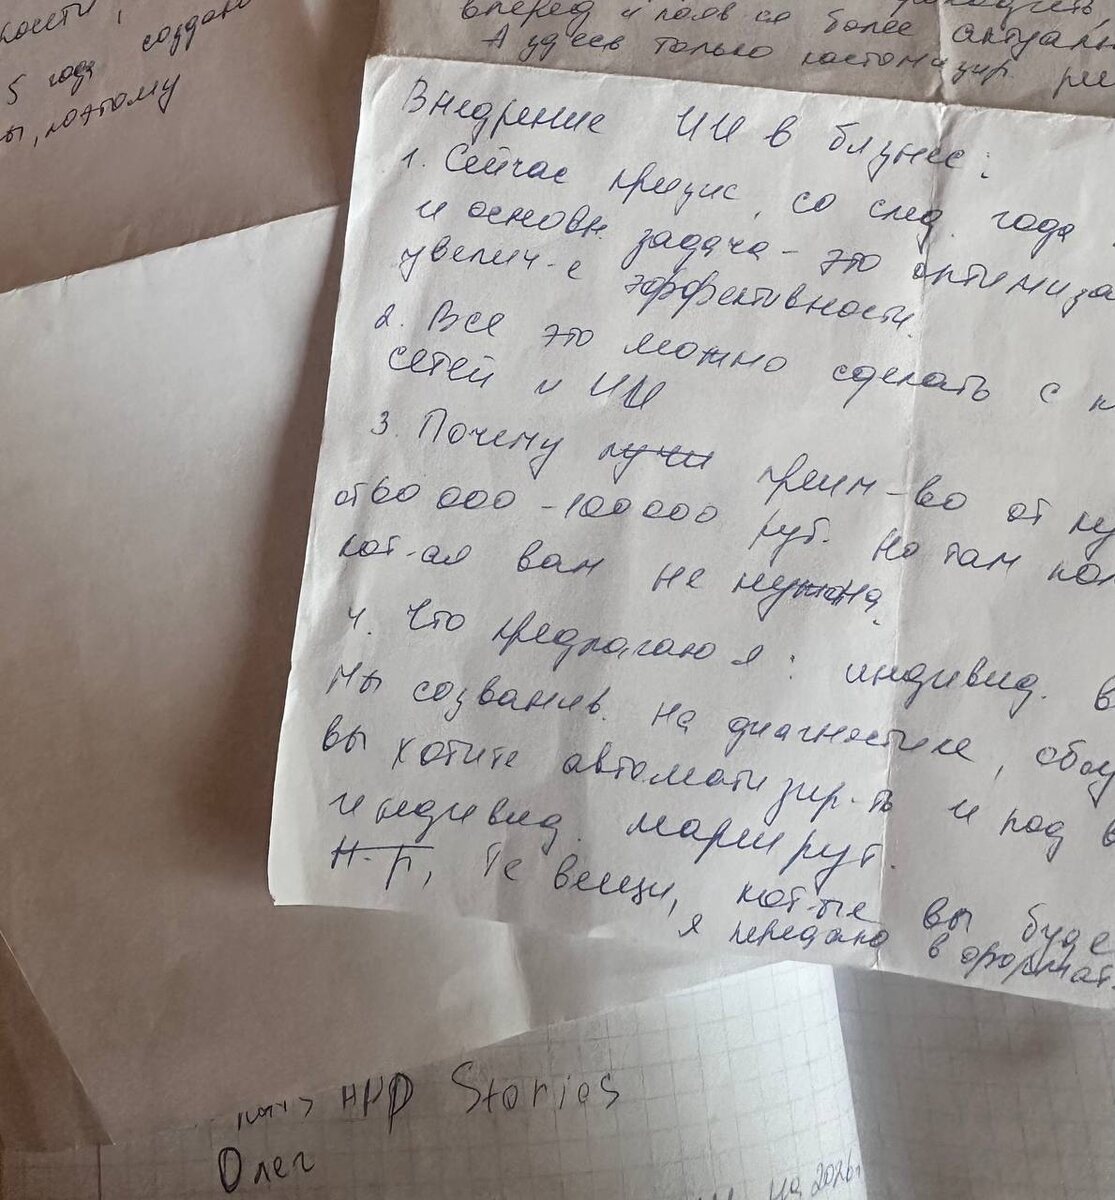 5 года создан
ы, поэтому
вперед и появ-ся более актуальн
А здесь только кастомизир. ре
Внедрение ИИ в бизнес:
1. Сейчас кризис, со след. года
и основн. задача - это оптимиза
увелич-е эффективности.
2. Все это можно сделать с п
сетей и ИИ
3. Почему преим-во от ку
от 60 000 - 100 000 руб. Но там
кот-ая вам не нужна.
4. Что предлагаю я: индивид. в
Мы созванив. на диагностике, обсу
вы хотите автоматизир-ть и под в
индивид. маршрут.
Н-р, те вещи, кот-ые вы буде
я передаю в формат
App Stories
Олег
на 2026г